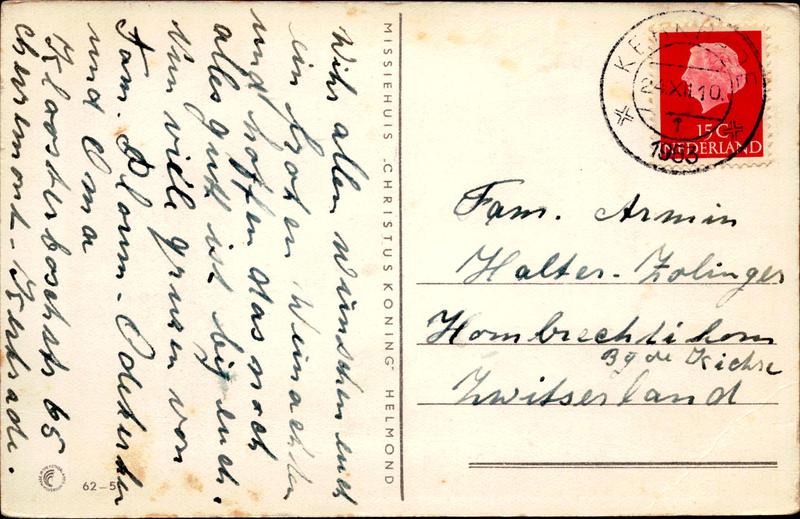 Wihr allen wünschen euch
ein froten Weinachten
und hoffen das noch
alles gutt ist bij euch.
Nun viele grusen von
Fam. Ploum-Odekerken
und Oma
Kloosterboschstr 65
Chevremont-Kerkrade.
MISSIEHUIS „CHRISTUS KONING" HELMOND
62-5
24 XII 10
1953
15 C
NEDERLAND
Fam. Armin
Halter-Zolinger
Hombrechtikom
Bg de Kichre
Zwitserland